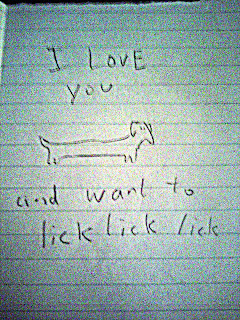 I LOVE
you
and want to
lick lick lick